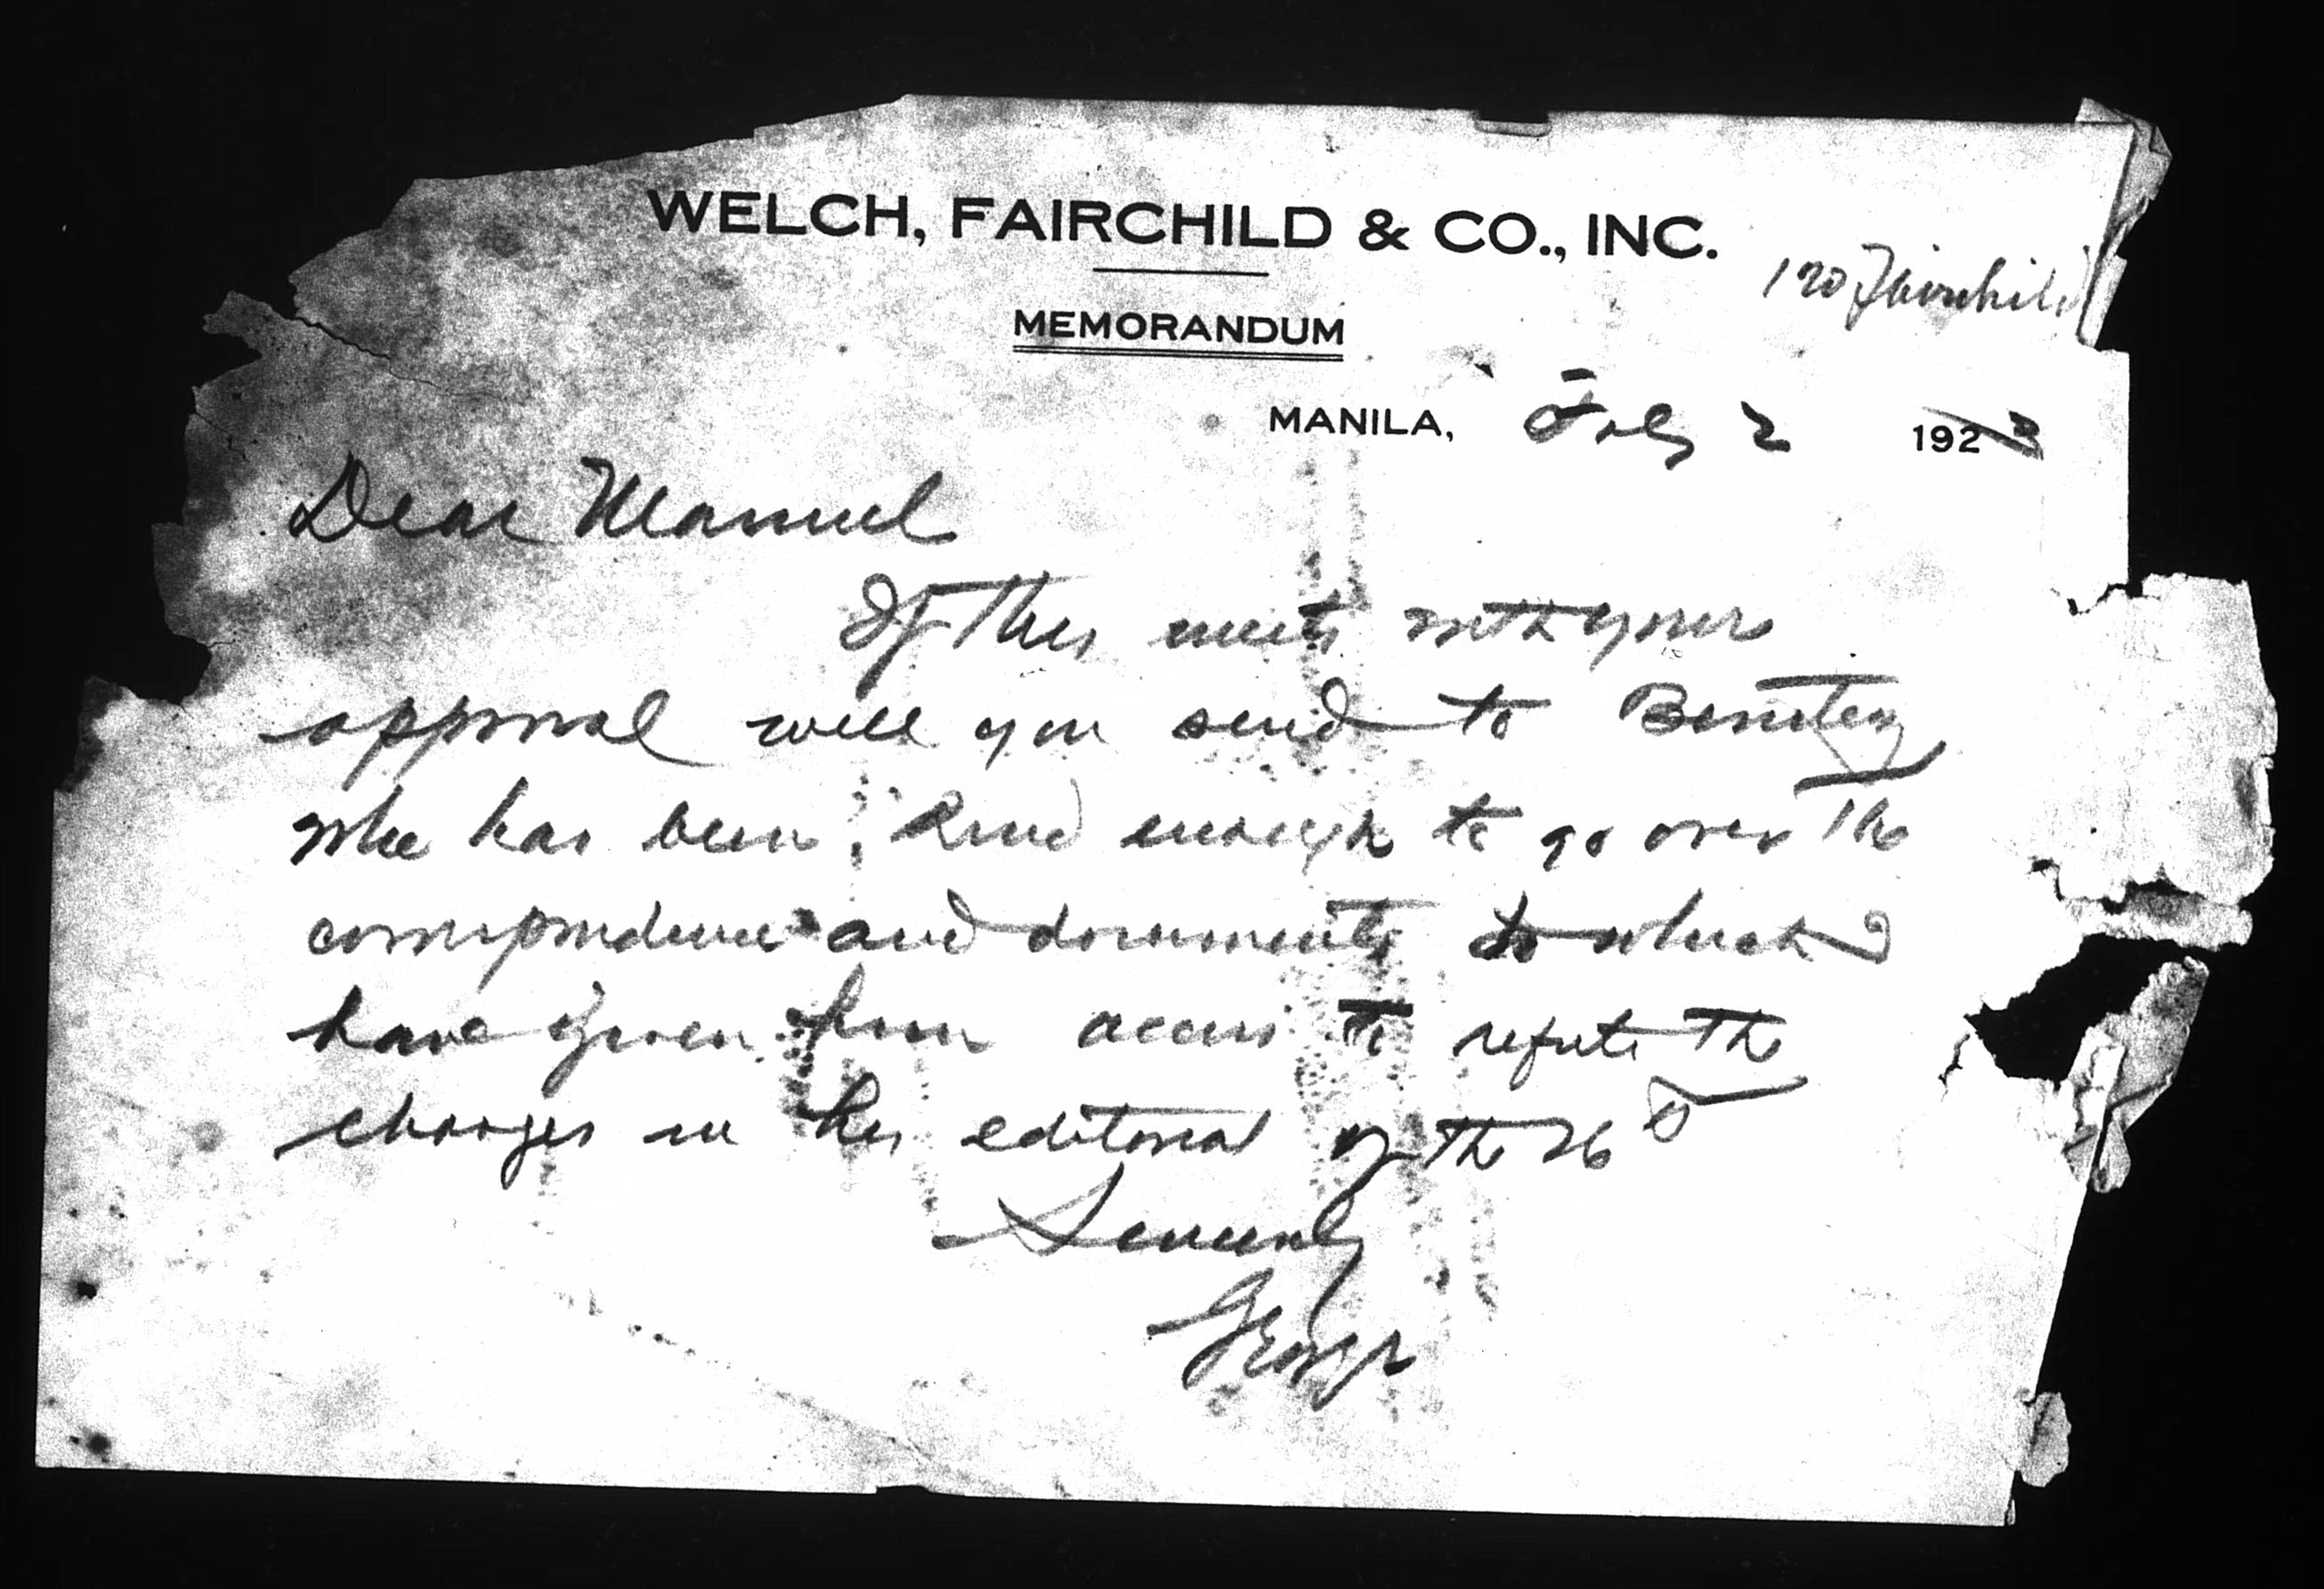 WELCH, FAIRCHILD & CO., INC.
Fairchild
MEMORANDUM
MANILA, Feby 2 1923
Dear Manuel
If this meets with your
approval will you send to Benitez
who has been kind enough to go over the
correspondence and documents to which I
have given him access to refute the
charges in his editorial of the 26
Sincerely
George